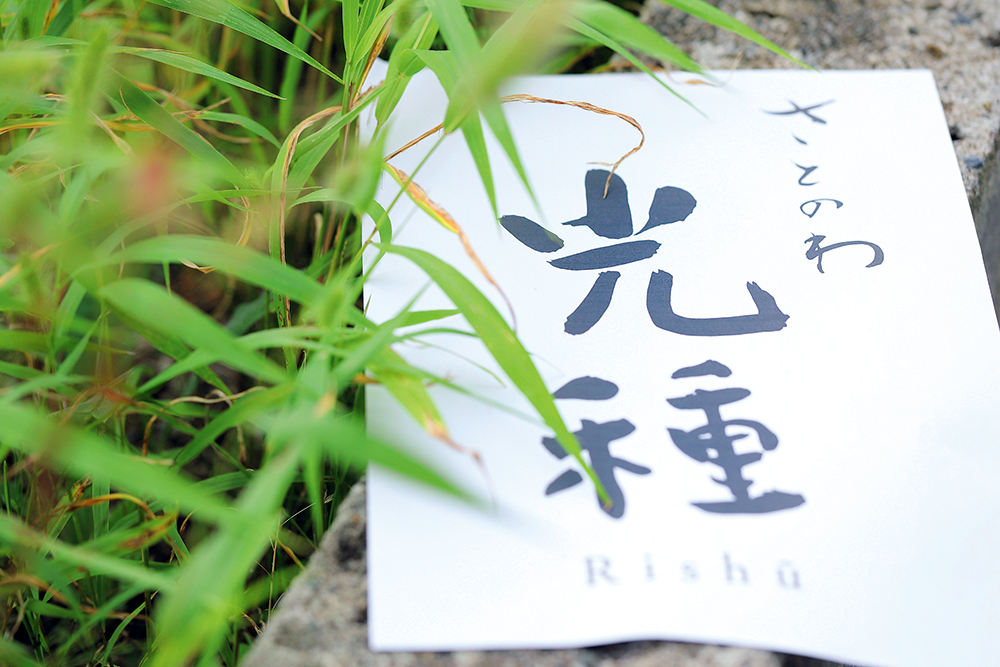 さとのわ
光種
Rishū